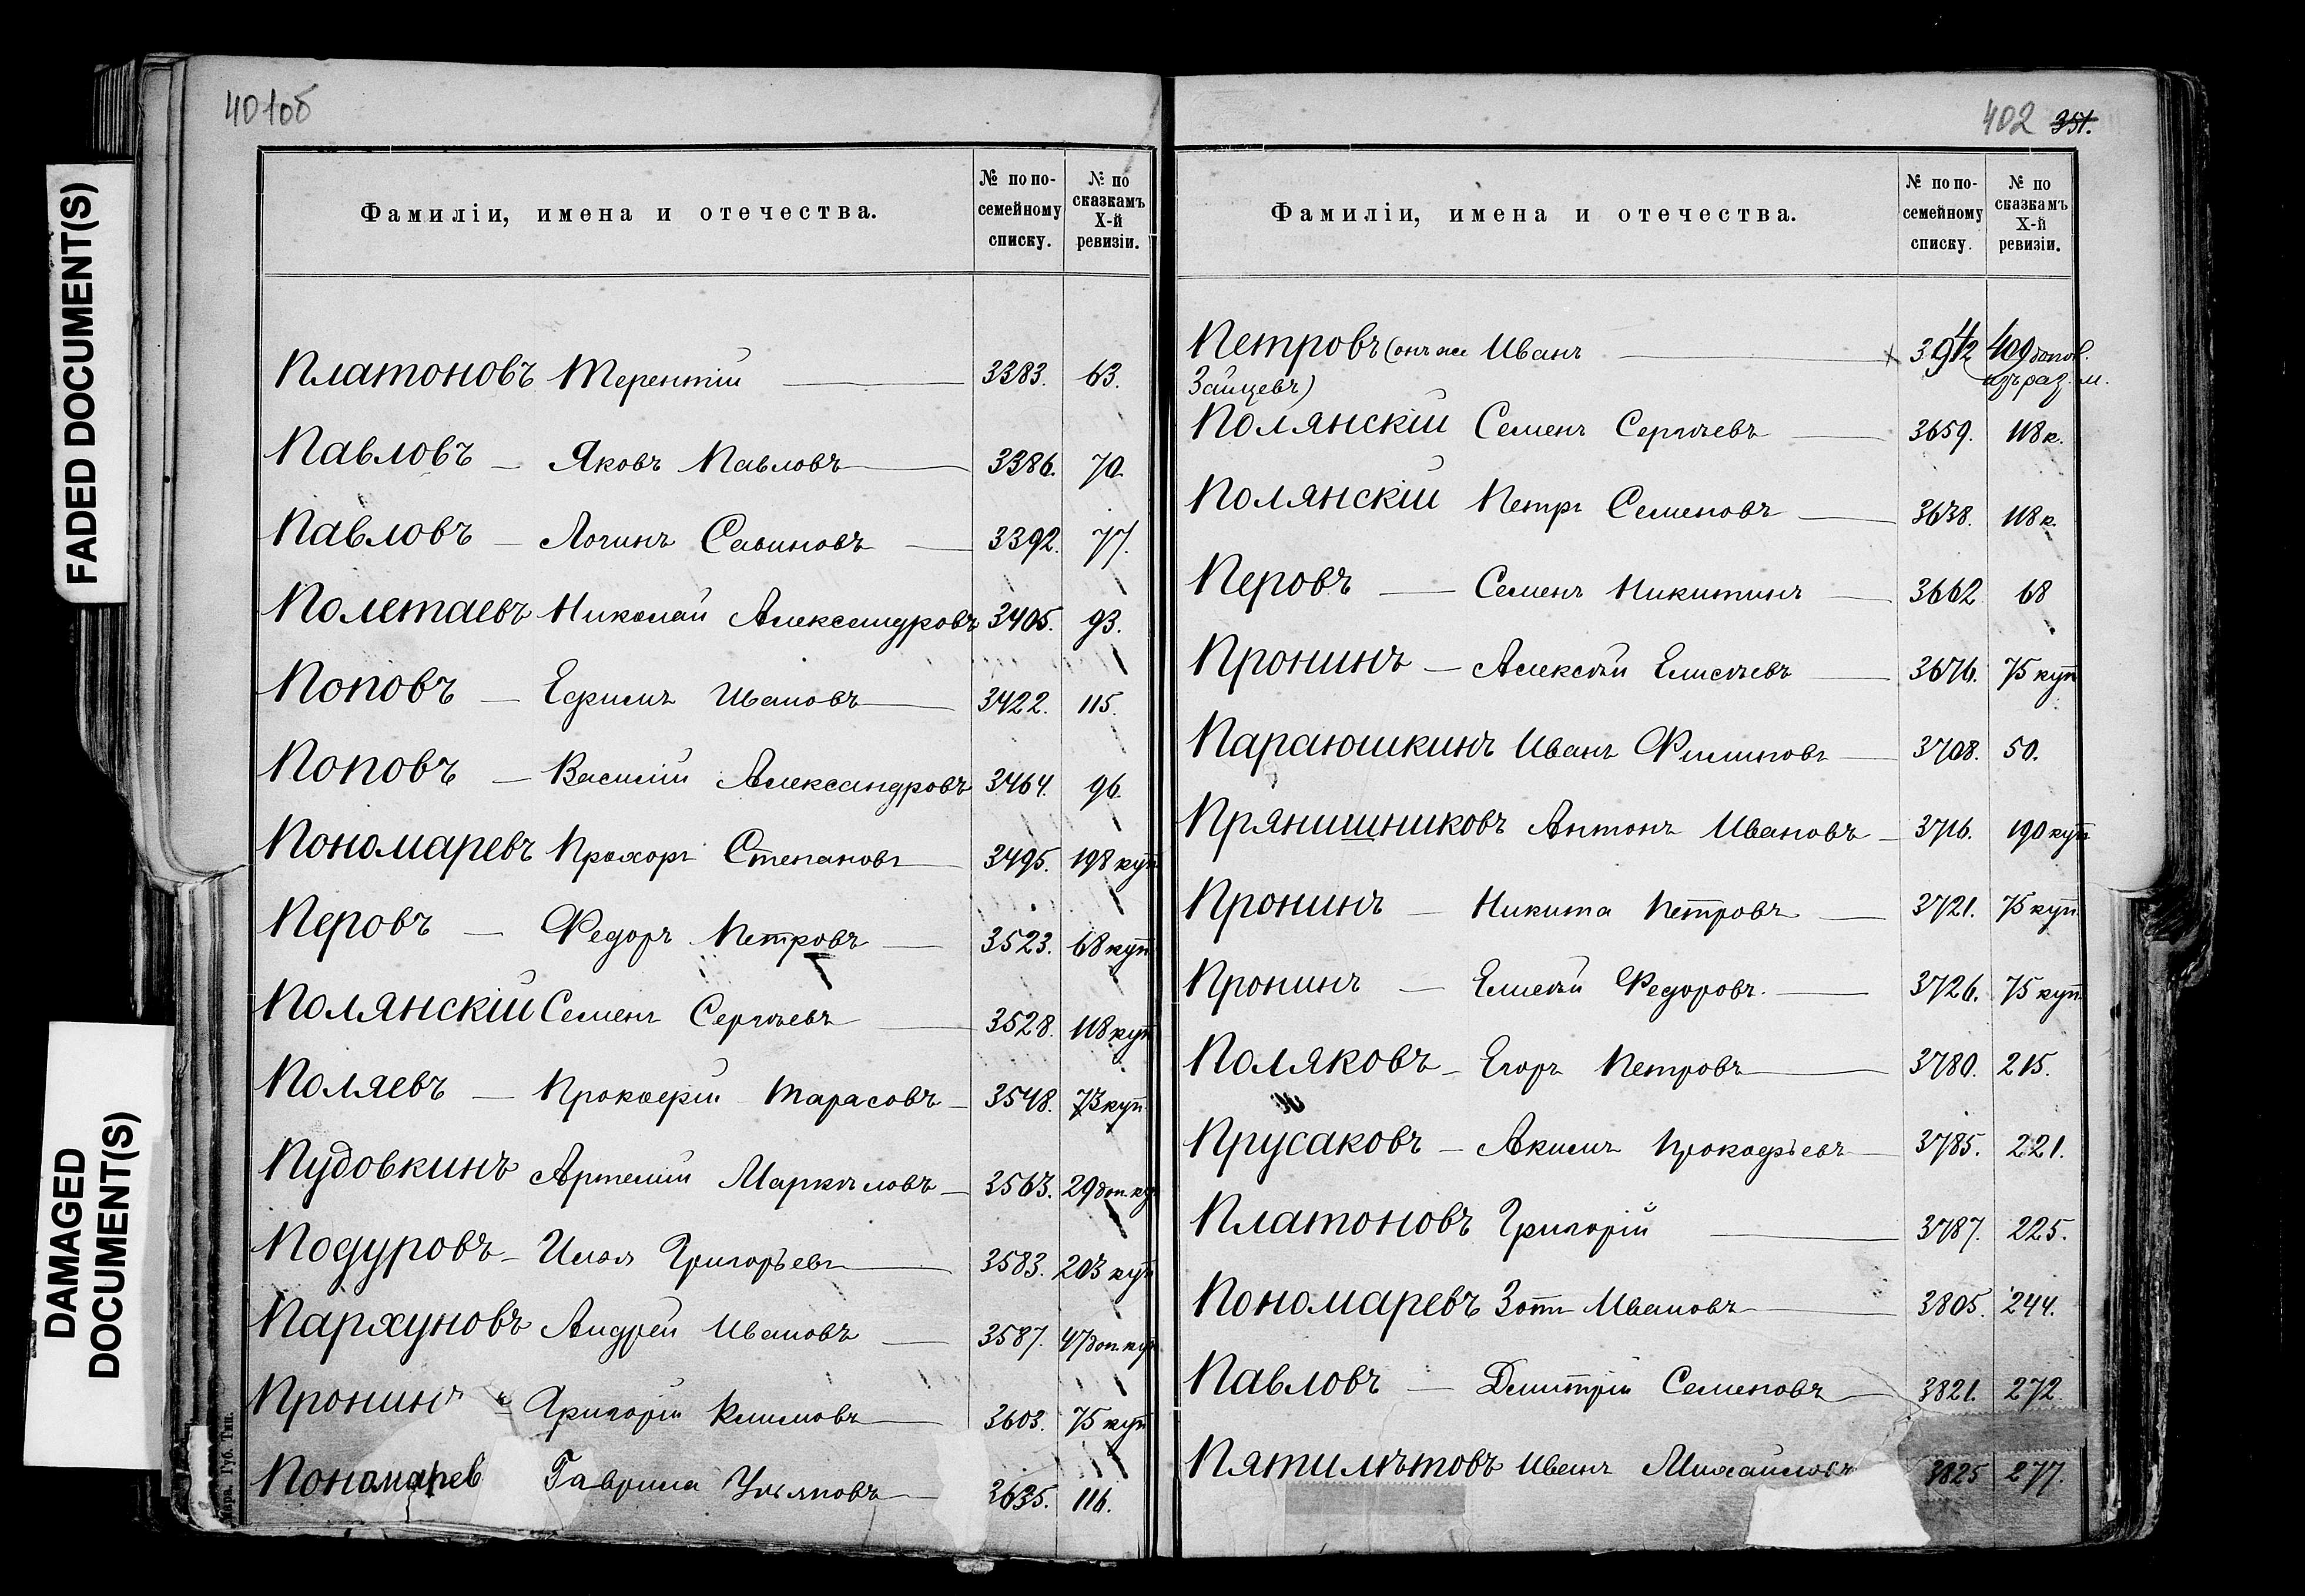 FADED DOCUMENT(S)
DAMAGED
DOCUMENT(S)
401об
Фамиліи, имена и отечества.
№ по по-
семейному
списку.
№ по
сказкамъ
X-й
ревизіи.
Платоновъ Терентій 3383. 63.
Павловъ — Яковъ Павловъ 3386. 70.
Павловъ — Логинъ Савиновъ 3392. 77.
Полетаевъ Николай Александровъ 3405. 93.
Поповъ — Ефимъ Ивановъ 3422. 115.
Поповъ — Василій Александровъ 3464. 96.
Пономаревъ Прохоръ Степановъ 3495. 198 куп
Перовъ — Федоръ Петровъ 3523. 68 куп
Полянскій Семенъ Сергѣевъ 3528. 118 куп
Поляевъ — Прокофій Тарасовъ 3548. 73 куп.
Пудовкинъ Артемій Маркѣловъ 3563. 29 доп. ку
Подуровъ — Илья Григорьевъ 3583. 203 куп
Пархуновъ Андрей Ивановъ 3587. 47 доп. куп
Пронинъ — Григорій Климовъ 3603. 75 куп
Пономарев Гаврила Ульяновъ 3635. 116.
Губ. Тип.
402 351.
Фамиліи, имена и отечества.
№ по по-
семейному
списку.
№ по
сказкамъ
X-й
ревизіи.
Петровъ (онъ же Иванъ 3942 409 допол.
Зайцевъ) изъ раз. м.
Полянскій Семенъ Сергѣевъ 3659. 118 к.
Полянскій Петръ Семеновъ 3638. 118 к.
Перовъ — Семенъ Никитинъ 3662 68
Пронинъ — Алексѣй Елисѣевъ 3676. 75 куп
Параюшкинъ Иванъ Филиповъ 3708. 50.
Прянишниковъ Антонъ Ивановъ 3716. 190 куп
Пронинъ — Никита Петровъ 3721. 75 куп.
Пронинъ — Елисѣй Федоровъ. 3726. 75 куп.
Поляковъ — Егоръ Петровъ 3780. 215.
Прусаковъ — Акимъ Прокофьевъ 3785. 221.
Платоновъ Григорій 3787. 225.
Пономаревъ Зотъ Ивановъ 3805. 244.
Павловъ — Дмитрій Семеновъ 3821. 272.
Пятилѣтовъ Иванъ Михайловъ 3825 277.